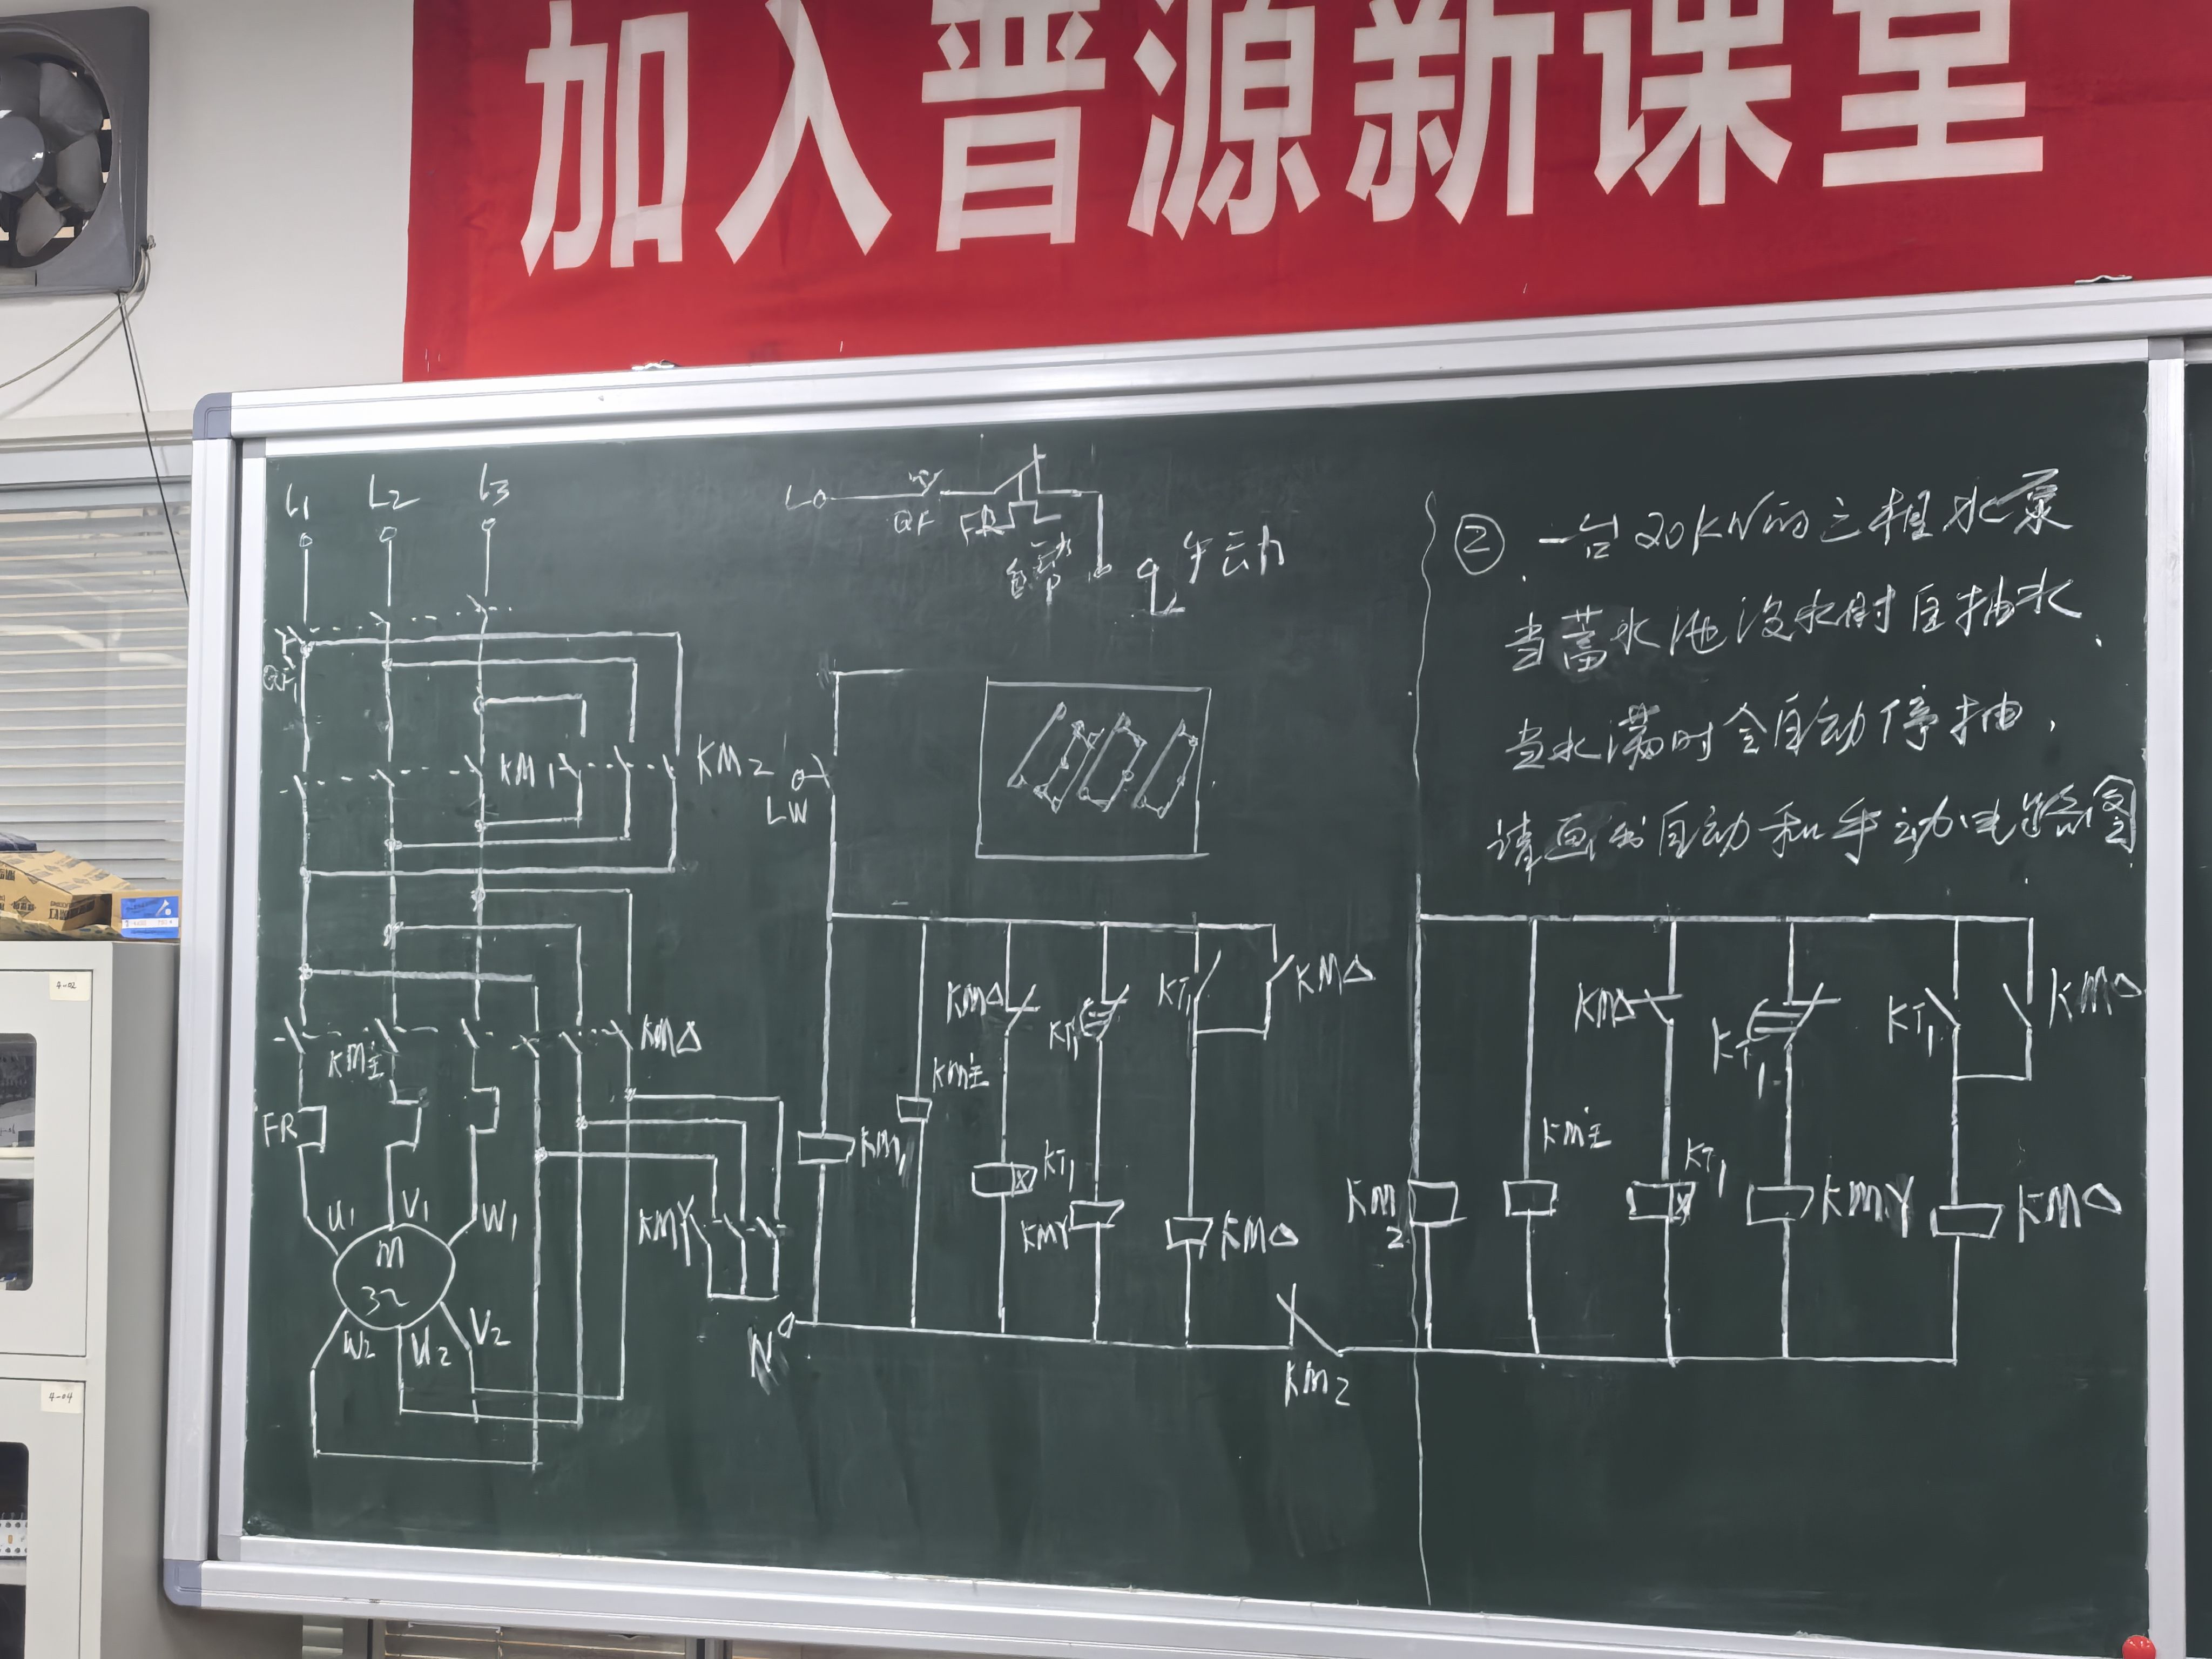 加入晋源新课堂
L1 L2 L3
QF1
KM1 KM2
KM主 KM△
FR
U1 V1 W1
M
3~
W2 U2 V2
KMY
L QF FR
自动 手动
LW
KM△ KT1 KT1 KM△
KM主
KM1 KT1
KMY KM△
N KM2
② 一台20KW的三相水泵
当蓄水池没水时自抽水.
当水满时会自动停抽,
请画出自动和手动电路图
KM△ KT1 KT1 KM△
KM主 KT1
KM2 KMY KM△
4-02
4-04